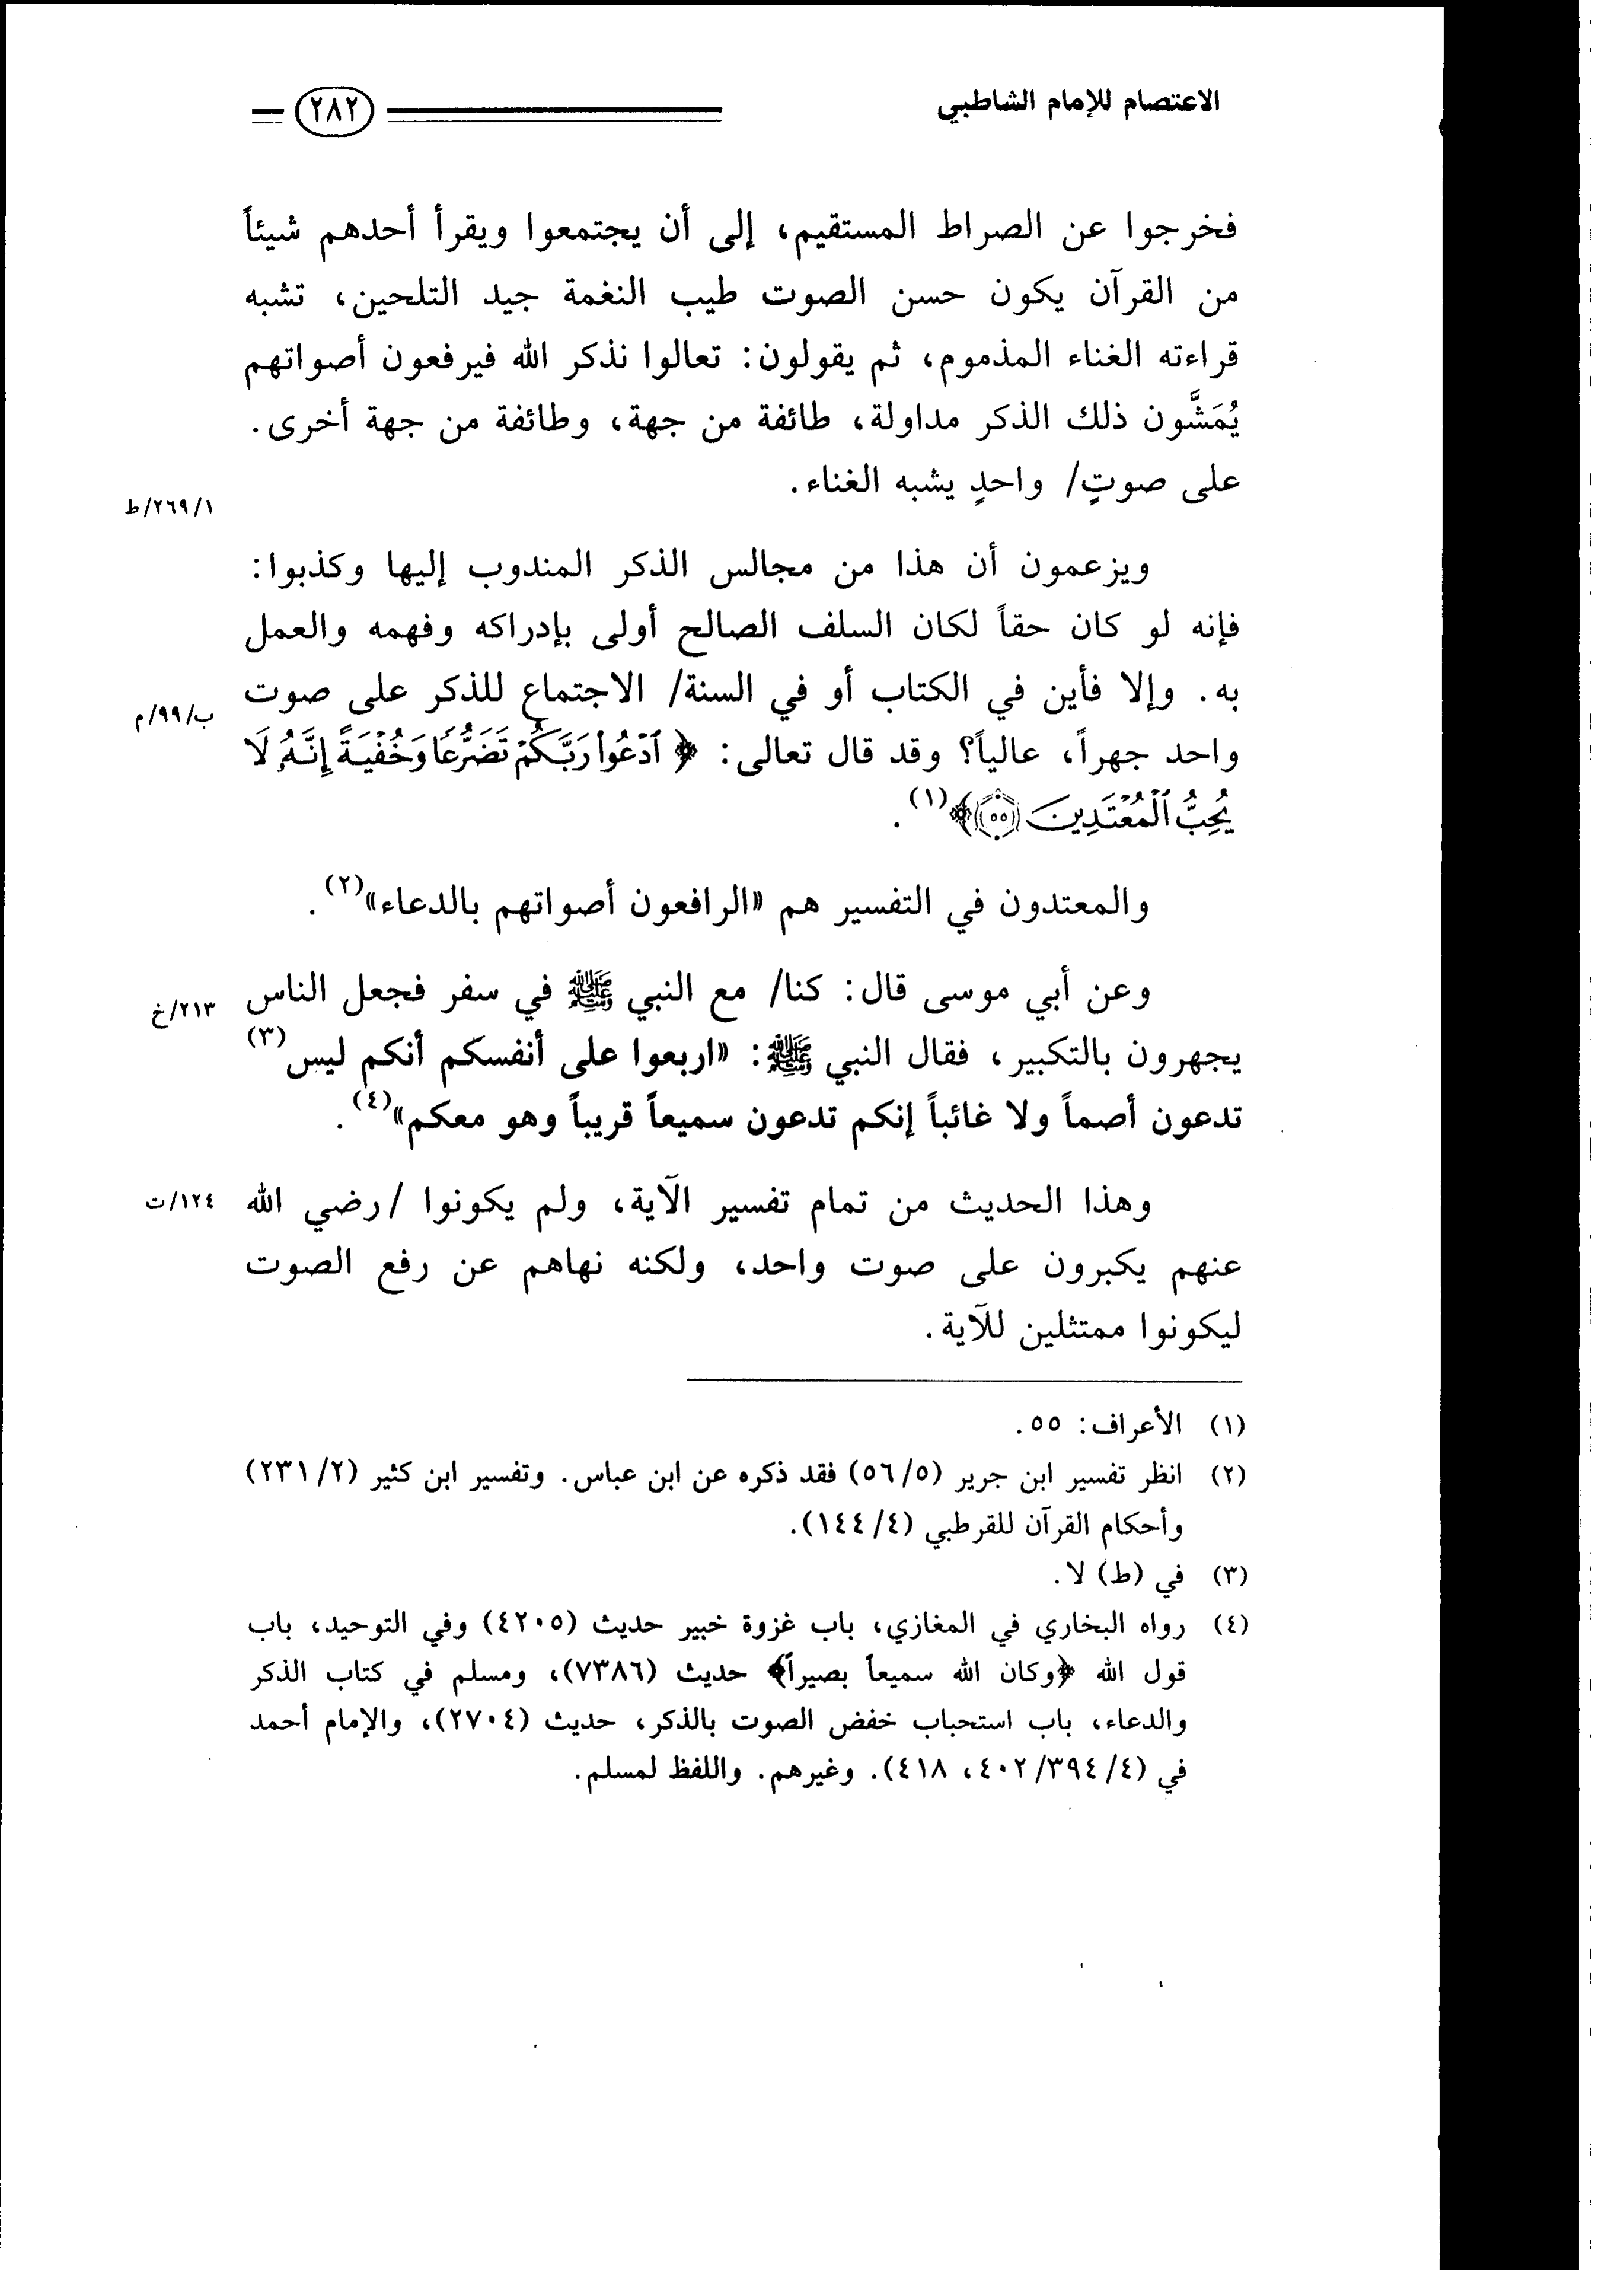 الاعتصام للإمام الشاطبي ٢٨٢
فخرجوا عن الصراط المستقيم، إلى أن يجتمعوا ويقرأ أحدهم شيئاً
من القرآن يكون حسن الصوت طيب النغمة جيد التلحين، تشبه
قراءته الغناء المذموم، ثم يقولون: تعالوا نذكر الله فيرفعون أصواتهم
يُمَشَّون ذلك الذكر مداولة، طائفة من جهة، وطائفة من جهة أخرى.
على صوتٍ/ واحدٍ يشبه الغناء.
٢٦٩/١/ط
ويزعمون أن هذا من مجالس الذكر المندوب إليها وكذبوا:
فإنه لو كان حقاً لكان السلف الصالح أولى بإدراكه وفهمه والعمل
به. وإلا فأين في الكتاب أو في السنة/ الاجتماع للذكر على صوت
ب/٩٩/م
واحد جهراً، عالياً؟ وقد قال تعالى: ﴿ ٱدْعُوا۟ رَبَّكُمْ تَضَرُّعًا وَخُفْيَةً إِنَّهُۥ لَا
يُحِبُّ ٱلْمُعْتَدِينَ ٥٥﴾(١).
والمعتدون في التفسير هم «الرافعون أصواتهم بالدعاء»(٢).
وعن أبي موسى قال: كنا/ مع النبي ﷺ في سفر فجعل الناس
٢١٣/خ
يجهرون بالتكبير، فقال النبي ﷺ: «اربعوا على أنفسكم أنكم ليس(٣)
تدعون أصماً ولا غائباً إنكم تدعون سميعاً قريباً وهو معكم»(٤).
وهذا الحديث من تمام تفسير الآية، ولم يكونوا /رضي الله
١٢٤/ت
عنهم يكبرون على صوت واحد، ولكنه نهاهم عن رفع الصوت
ليكونوا ممتثلين للآية.
(١) الأعراف: ٥٥.
(٢) انظر تفسير ابن جرير (٥٦/٥) فقد ذكره عن ابن عباس. وتفسير ابن كثير (٢٣١/٢)
وأحكام القرآن للقرطبي (١٤٤/٤).
(٣) في (ط) لا.
(٤) رواه البخاري في المغازي، باب غزوة خبير حديث (٤٢٠٥) وفي التوحيد، باب
قول الله ﴿وكان الله سميعاً بصيراً﴾ حديث (٧٣٨٦)، ومسلم في كتاب الذكر
والدعاء، باب استحباب خفض الصوت بالذكر، حديث (٢٧٠٤)، والإمام أحمد
في (٤٠٢/٣٩٤/٤، ٤١٨). وغيرهم. واللفظ لمسلم.